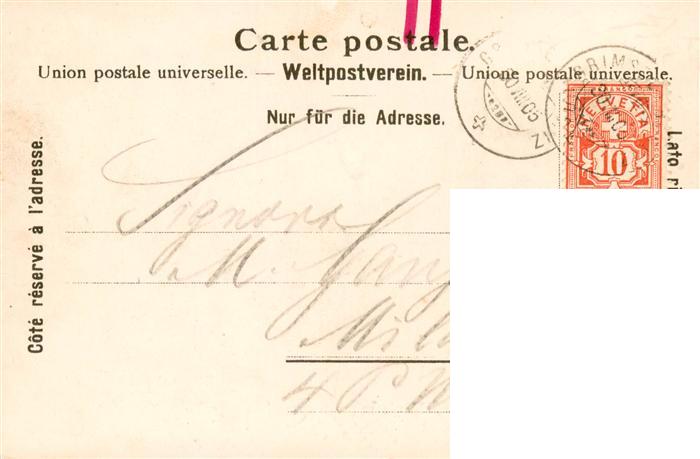 Carte postale.
Union postale universelle. — Weltpostverein. — Unione postale universale.
Nur für die Adresse.
Côté réservé à l'adresse.
Lato
HELVETIA
10
Signora
M.
4 P.